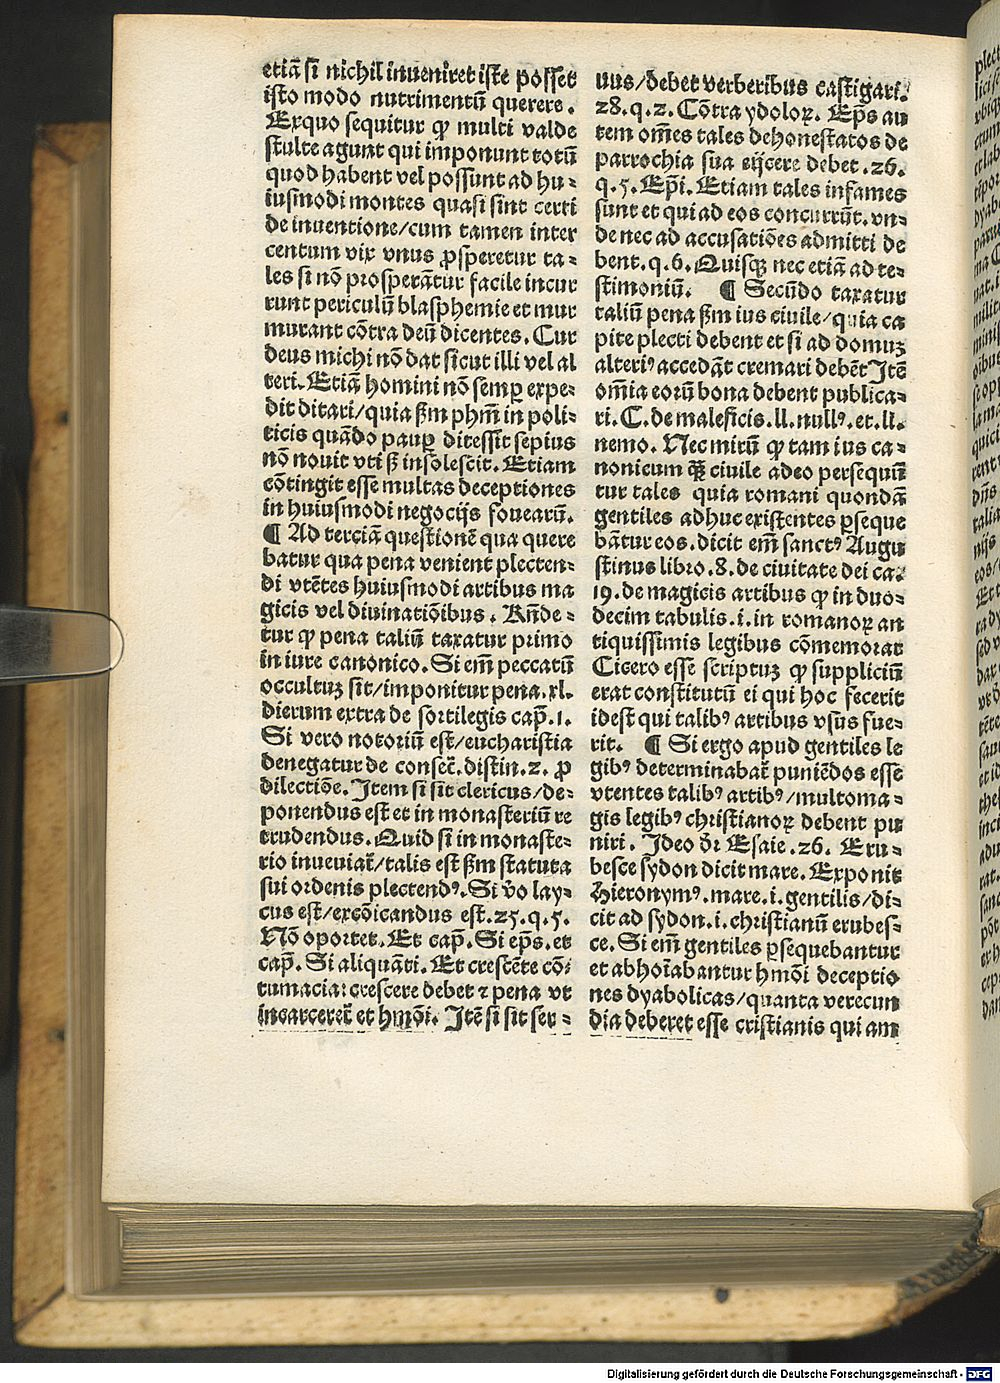 etiā si nichil inveniret iste posset
isto modo nutrimentū querere.
Exquo sequitur ꝙ multi valde
stulte agunt qui imponunt totū
quod habent vel possunt ad hu⸗
iusmodi montes quasi sint certi
de inventione/cum tamen inter
centum vix vnus ꝓsperetur ta⸗
les si nō prosperātur facile incur
runt periculū blasphemie et mur
murant cōtra deū dicentes. Cur
deus michi nō dat sicut illi vel al
teri. Etiā homini nō semꝑ expe⸗
dit ditari/quia ẜm phm̄ in poli⸗
ticis quādo pauꝑ ditessit sepius
nō novit vti ẜ insolescit. Etiam
cōtingit esse multas deceptiones
in huiusmodi negocijs fovearū.
¶ Ad terciā questionē qua quere
batur qua pena venient plecten⸗
di vtētes huiusmodi artibus ma
gicis vel divinatiōibus. Rn̄de⸗
tur ꝙ pena taliū taxatur primo
in iure canonico. Si em̄ peccatū
occultuꝫ sit/imponitur pena .xl.
dierum extra de sortilegis cap̄. 1.
Si vero notoriū est/eucharistia
denegatur de consec̄. distin. 2. ꝓ
dilectiōe. Item si sit clericus/de⸗
ponendus est et in monasteriū re
trudendus. Quid si in monaste⸗
rio inveniat̄/talis est ẜm statuta
sui ordenis plectendꝰ. Si v̄o lay⸗
cus est/excōicandus est. 25. q. 5.
Nō oportet. Et cap̄. Si ep̄s. et
cap̄. Si aliquāti. Et crescēte cō⸗
tumacia: crescere debet ⁊ pena vt
incarceret̄ et hmōi. Itē si sit ser⸗
vus/debet verberibus castigari.
28. q. 2. Cōtra ydoloꝝ. Ep̄s au
tem om̄es tales dehonestatos de
parrochia sua eijcere debet. 26.
q. 5. Ep̄i. Etiam tales infames
sunt et qui ad eos concurrūt. vn⸗
de nec ad accusatiōes admitti de
bent. q. 6. Quisqꝫ nec etiā ad te⸗
stimoniū. ¶ Secūdo taxatur
taliū pena ẜm ius civile/quia ca
pite plecti debent et si ad domuꝫ
alteriꝰ accedāt cremari debēt Itē
om̄ia eorū bona debent publica⸗
ri. C. de maleficis. ll. nullꝰ. et. ll.
nemo. Nec mirū ꝙ tam ius ca⸗
nonicum qꝫ civile adeo persequū
tur tales quia romani quondā
gentiles adhuc existentes ꝑseque
bātur eos. dicit em̄ sanctꝰ Augu
stinus libro. 8. de civitate dei ca.
19. de magicis artibus ꝙ in duo⸗
decim tabulis .i. in romanoꝝ an
tiquissimis legibus cōmemorat
Cicero esse scriptuꝫ ꝙ suppliciū
erat constitutū ei qui hoc fecerit
idest qui talibꝰ artibus vsus fue⸗
rit. ¶ Si ergo apud gentiles le
gibꝰ determinabat̄ puniēdos esse
vtentes talibꝰ artibꝰ/multoma⸗
gis legibꝰ christianoꝝ debent pu
niri. Ideo dr̄ Esaie. 26. Eru⸗
besce sydon dicit mare. Exponit
Hieronymꝰ. mare .i. gentilis/di⸗
cit ad sydon .i. christianū erubes⸗
ce. Si em̄ gentiles ꝑsequebantur
et abhoīabantur hmōi deceptio
nes dyabolicas/quanta verecun
dia deberet esse cristianis qui am
Digitalisierung gefördert durch die Deutsche Forschungsgemeinschaft - DFG